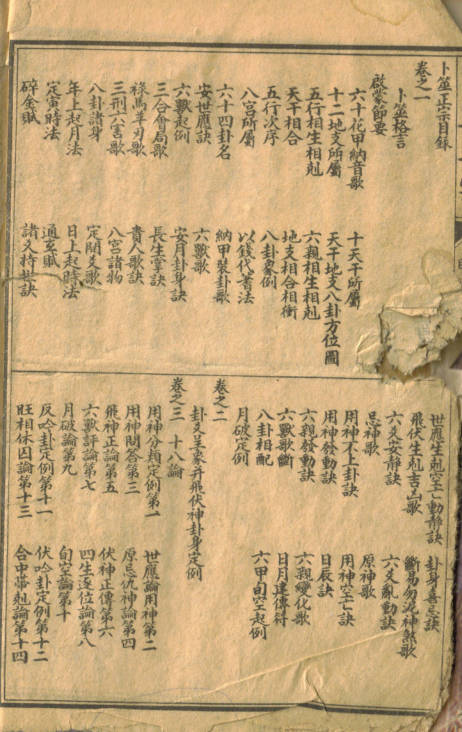 卜筮正宗目錄
卷之一
卜筮格言
啟蒙節要
六十花甲納音歌 十天干所屬
十二地支所屬 天干地支八卦方位圖
五行相生相剋 六親相生相剋
天干相合 地支相合相衝
五行次序 八卦象例
八宮所屬 以錢代蓍法
六十四卦名 納甲裝卦歌
安世應訣 六獸歌
六獸起例 安月卦身訣
三合會局歌 長生掌訣
祿馬羊刃歌 貴人歌訣
三刑六害歌 八宮諸物
八卦諸身 定間爻歌
年上起月法 日上起時法
定寅時法 通玄賦
碎金賦 諸爻持世訣
世應生剋空亡動靜訣 卦身喜忌訣
飛伏生剋吉凶歌 斷易勿泥神煞歌
六爻安靜訣 六爻亂動訣
忌神歌 原神歌
用神不上卦訣 用神空亡訣
用神發動訣 日辰訣
六親發動訣 六親變化歌
六獸歌斷 日月建傳符
八卦相配 六甲旬空起例
月破定例
卷之二
卦爻呈象并飛伏神卦身定例
卷之三 十八論
用神分類定例第一 世應論用神第二
用神問答第三 原忌仇神論第四
飛神正論第五 伏神正傳第六
六獸評論第七 四生逐位論第八
月破論第九 旬空論第十
反吟卦定例第十一 伏吟卦定例第十二
旺相休囚論第十三 合中帶剋論第十四